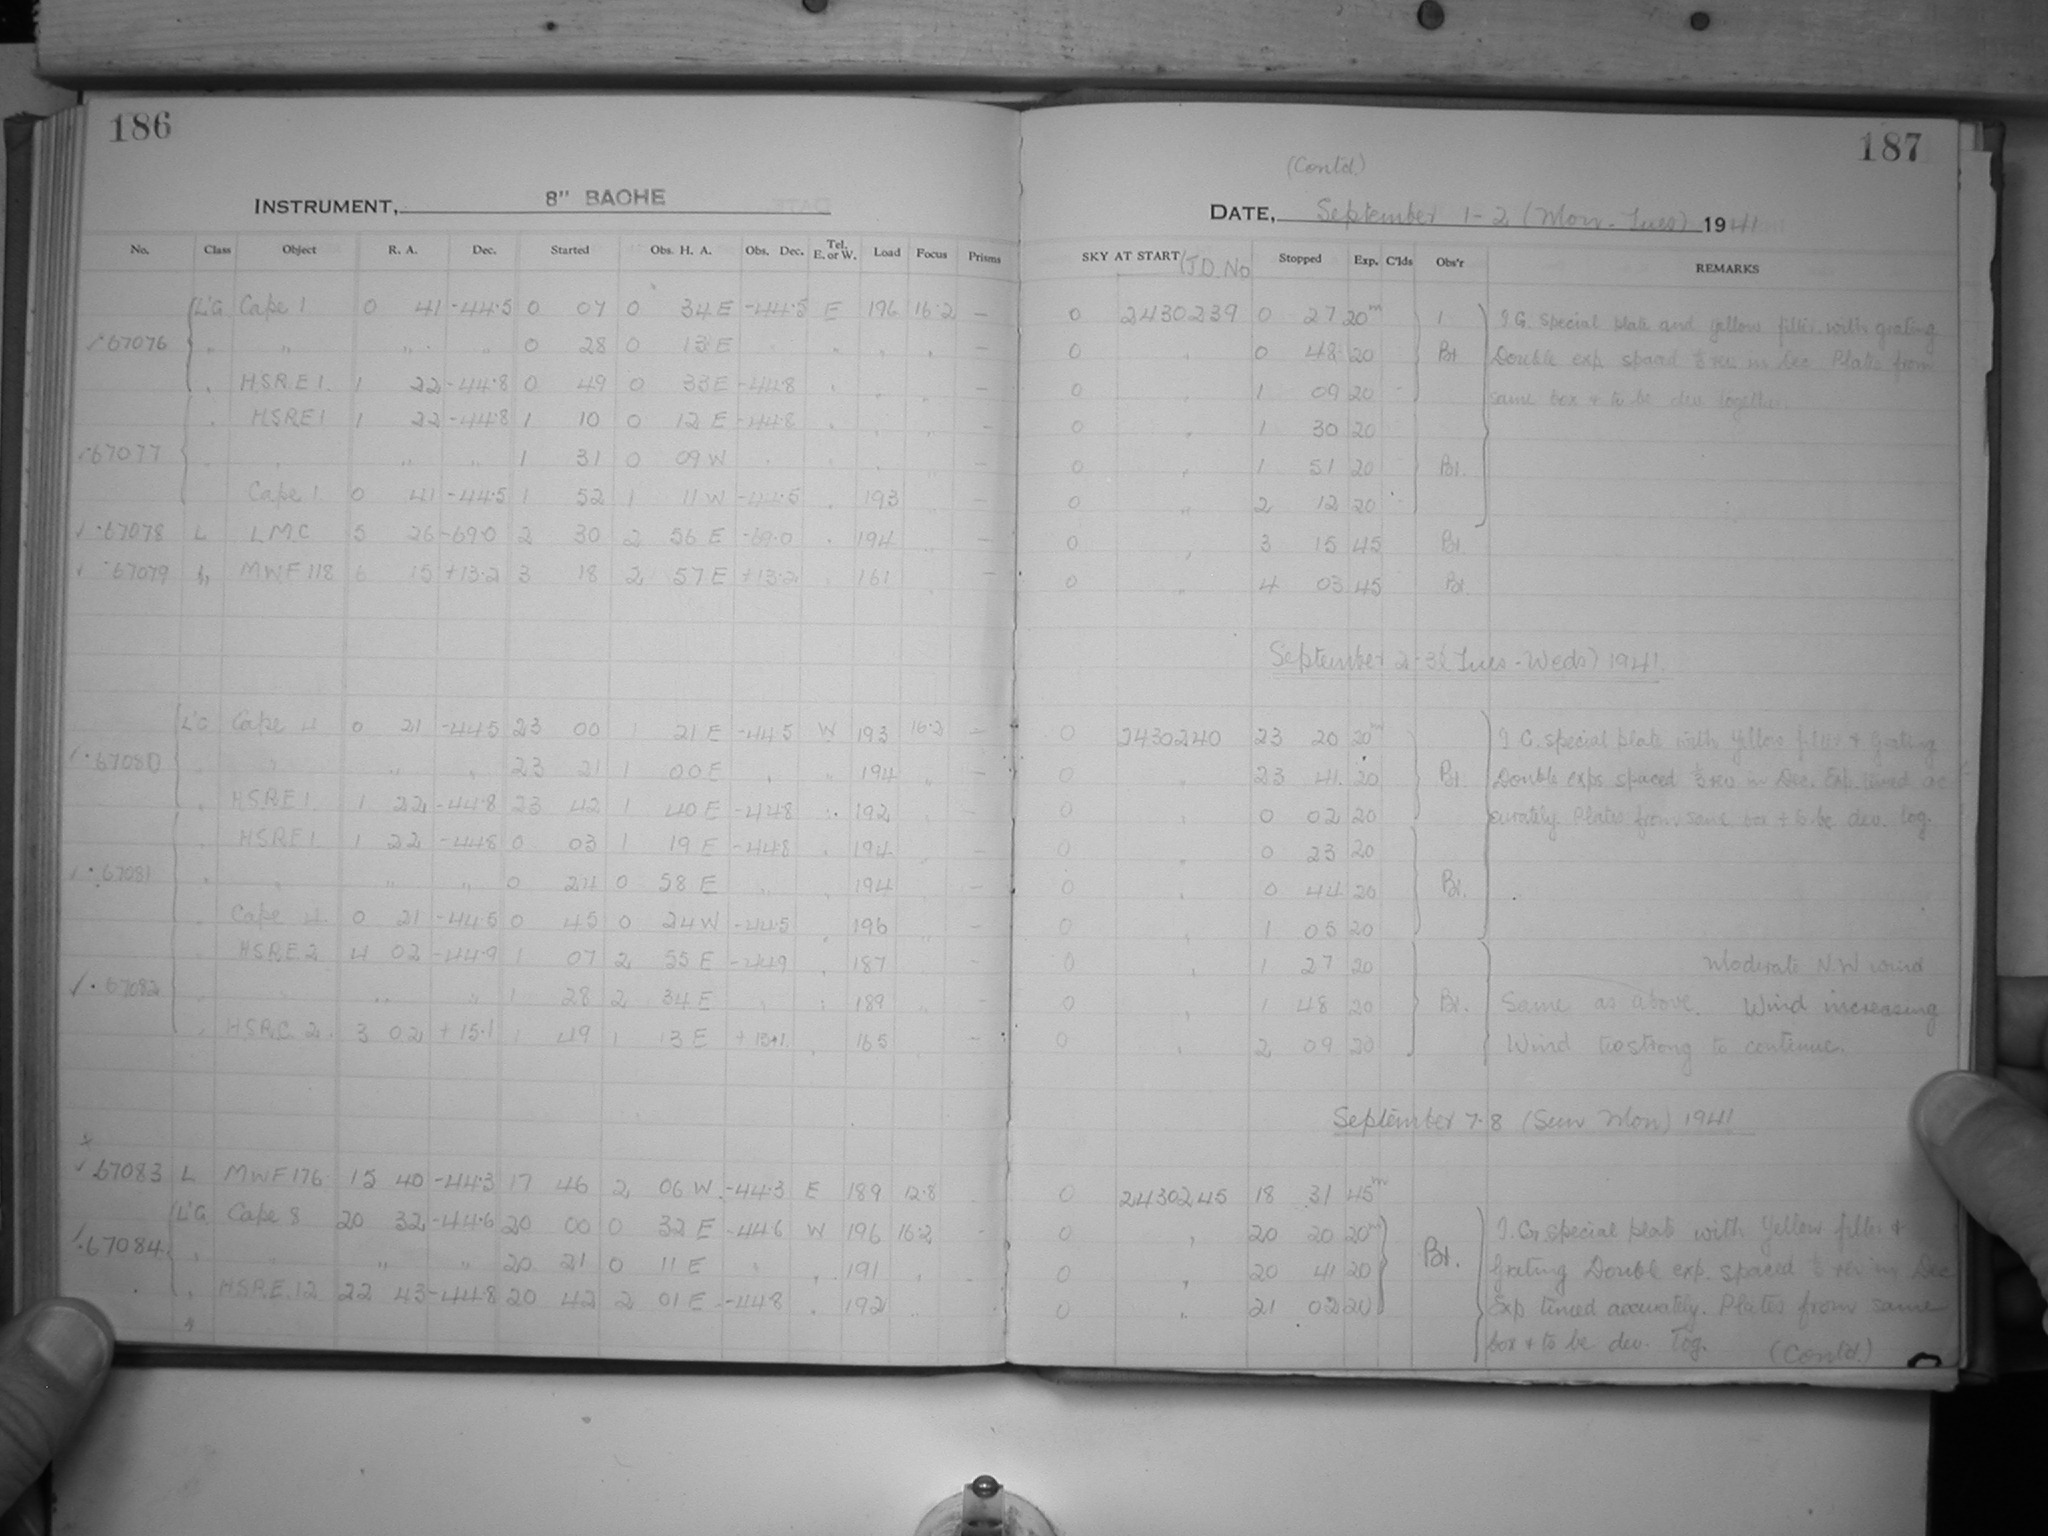 186
INSTRUMENT, 8" BACHE
No. Class Object R. A. Dec. Started Obs. H. A. Obs. Dec. Tel. E. or W. Load Focus Prisms
L'G Cape 1 0 41 -44.5 0 07 0 34 E -44.5 E 196 16.2 —
67076 " " " " 0 28 0 13 E —
" HSRE 1. 1 22 -44.8 0 49 0 33 E -44.8 —
" HSRE 1 1 22 -44.8 1 10 0 12 E -44.8 —
67077 " " 1 31 0 09 W —
Cape 1 0 41 -44.5 1 52 1 11 W -44.5 193 —
67078 L LMC 5 26 -69.0 2 30 2 56 E -69.0 194 —
67079 MWF 118 6 15 +13.2 3 18 2 57 E +13.2 161 —
L'G Cape 4 0 21 -44.5 23 00 1 21 E -44.5 W 193 16.2 —
67080 " " " 23 21 1 00 E " " 194 " —
" HSRE 1. 1 22 -44.8 23 42 1 40 E -44.8 192 —
HSRE 1. 1 22 -44.8 0 03 1 19 E -44.8 194 —
67081 " " " 0 24 0 58 E 194 —
Cape 4. 0 21 -44.5 0 45 0 24 W -44.5 196 —
HSRE 2 4 02 -44.9 1 07 2 55 E -44.9 187 —
67082 " " 1 28 2 34 E 189 —
HSRC 2. 3 02 +15.1 1 49 1 13 E +15.1 165 —
67083 L MWF 176 15 40 -44.3 17 46 2 06 W -44.3 E 189 12.8
L'G Cape 8 20 32 -44.6 20 00 0 32 E -44.6 W 196 16.2
67084 " " " 20 21 0 11 E 191
HSRE 12 22 43 -44.8 20 42 2 01 E -44.8 192
187
(Contd.)
DATE, September 1-2 (Mon-Tues) 1941
SKY AT START J.D. No Stopped Exp. C'lds Obs'r REMARKS
0 2430239 0 27 20m I.G. special plate and yellow filter with grating
0 " 0 48 20 Bt Double exp. spaced ½ rev in Dec Plates from
0 1 09 20 same box & to be dev. together.
0 " 1 30 20
0 " 1 51 20 Bt.
0 " 2 12 20
0 " 3 15 45 Bt
0 " 4 03 45 Bt.
September 2-3 (Tues-Weds) 1941.
0 2430240 23 20 20m I G. special plate with Yellow filter & Grating
0 " 23 41 20 Bt Double exps spaced ½ rev in Dec. Exp. timed ac-
0 " 0 02 20 curately. Plates from same box & to be dev. tog.
0 " 0 23 20
0 " 0 44 20 Bt.
0 " 1 05 20
0 " 1 27 20 Moderate N.W wind
0 " 1 48 20 Bt. Same as above. Wind increasing
0 " 2 09 20 Wind too strong to continue.
September 7-8 (Sun Mon) 1941
0 2430245 18 31 45m
0 " 20 20 20m I. G. special plate with Yellow filter &
0 " 20 41 20 Bt. Grating Double exp. spaced ½ rev in Dec
0 " 21 02 20 Exp timed accurately. Plates from same
box & to be dev. Tog. (Contd.)